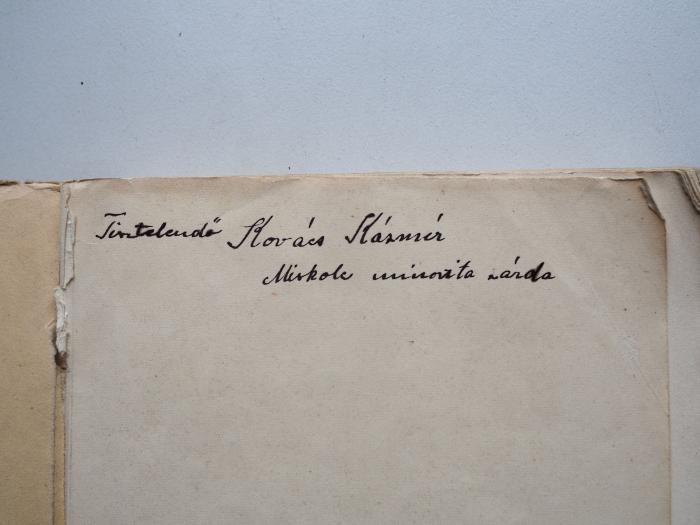 Tisztelendő Kovács Kázmér
Miskolc minorita zárda